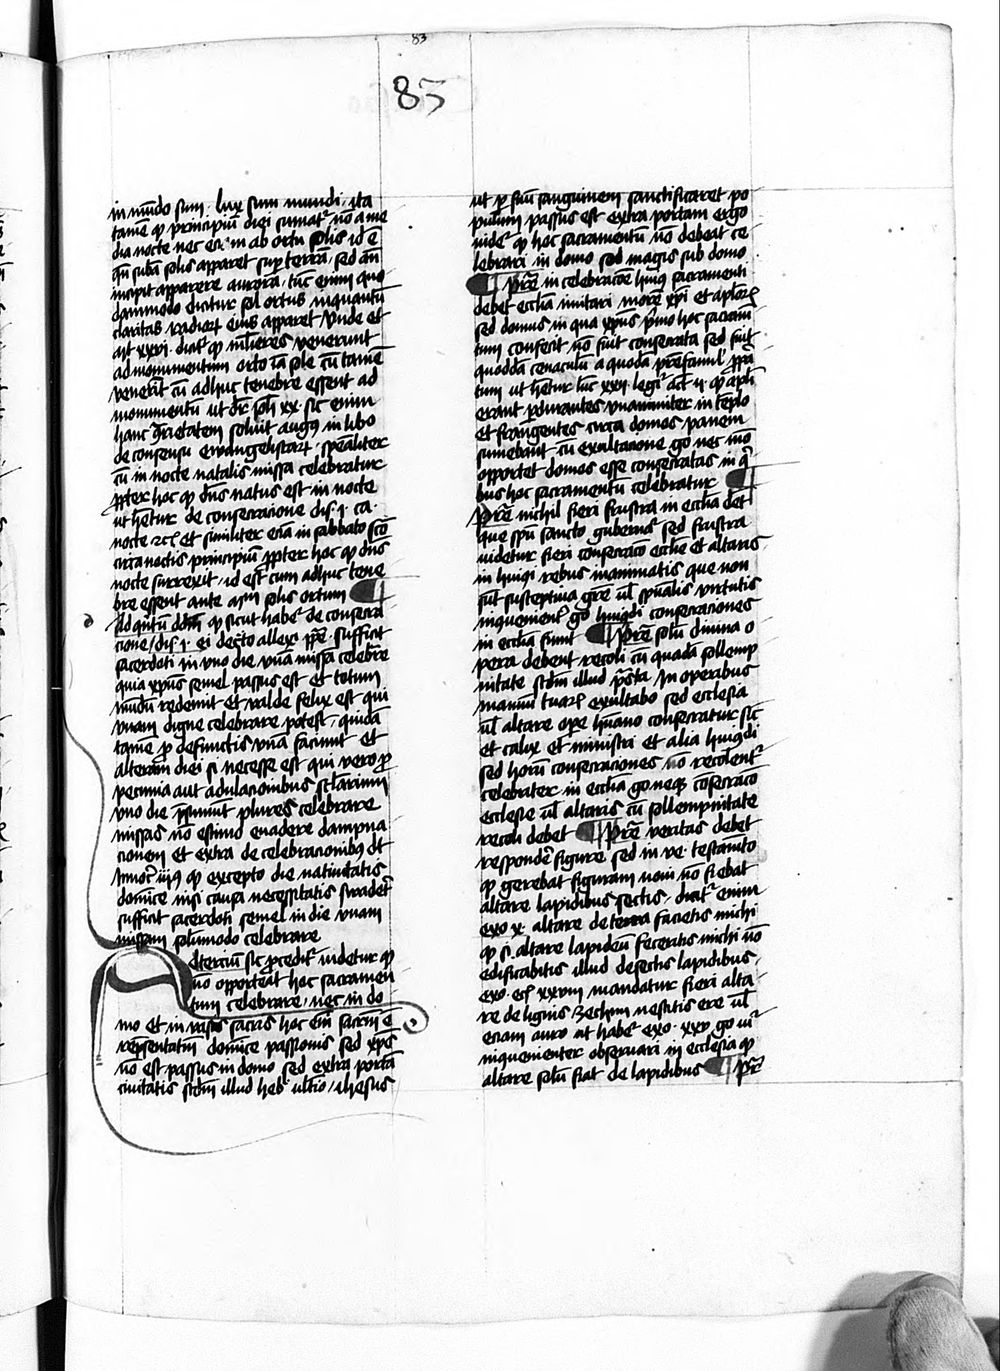 83
83
in mūdo sum . lux sum mundi . ita
tamē qꝫ principiū diei sumatᷣ nō a me
dia nocte nec eciā ab ortu solis id ē
qn̄ suba solis apparet suꝑ terrā , sed qn̄
incipit apparere aurora , tūc enim quo
dammodo dicitur sol ortus inquantū
claritas radioꝝ eius apparet . Vnde et
mᵣ xxvi . dicitᷣ qꝫ mulieres venerunt
ad monumentum orto iā sole cū tamē
venerīt cū adhuc tenebre essent ad
monumentū ut dr̄ ioh̄ xx . sic enim
hanc q̄rietatem soluit augꝰ in libo
de consensu ewangelistaꝝ . spēaliter
cū in nocte natalis missa celebratur
ꝓpter hoc qꝫ dn̄s natus est in nocte
ut hētur de consecracione dis . i . ca .
nocte ⁊cꝭ et similiter eciā in sabbato scō
circa noctis principiū ꝓpter hoc qꝫ dn̄s
nocte surrexit . id est cum adhuc tene
bre essent ante solis ortum ¶
Ad quītū dōm qꝫ sicut habeᷣ de consecra
cione / dis . i . ex decᵗo allexᵢ ꝑpē . sufficit
sacerdoti in vno die vnā missā celebrē
quia xpūs semel passus est et totum
mūdū redemit et valde felix est qui
vnam digne celebrare potest . quidā
tamē ꝓ defunctis vnā faciunt et
alteram diei si necesse est qui vero ꝓ
pecunia aut adulacionibus sclarium
vno die p̄sumunt plures celebrare
missas nō estimo euadere dampna
cionem et extra de celebracionibꝫ dt
Innocᵢ iijꝰ qꝫ excepto die natiuitatis
dominice nisi causa necessitatis suadeᷣ
sufficit sacerdoti semel in die vnam
missam solūmodo celebrare
Ad tercium sic ꝓceditᷣ videtur qꝫ
nō opporteat hoc sacramen
tum celebrare , nec in do
mo et in vasis sacris hoc em̄ sacrm̄ ē
rep̄sentatm̄ dominice passionis sed xpc̄
nō est passus in domo sed extra portā
ciuitatis scd̄m illud heb ultīo / ihesus
ut ꝑ suū sanguinem sanctificaret po
pulum passus est extra portam ergo
videᷣ qꝫ hoc sacramentū nō debeat ce
lebrari in domo sed magis sub domo
¶ Pr̄e in celebracōe huiꝰ sacramenti
debet eccliā imitari morē xpī et apl̄oꝝ
sed domus in qua xpūs pʳmo hoc sacram̄
tum confecit nō fuit consecrata sed fuit
quoddā cenaculū a quodā pr̄efamilᵢ ꝑpa
tum ut hētur luc xxij . legiᷣ act ij . qꝫ apl̄i
erant pdurantes vnanimiter in tēplo
et frangentes circa domos panem
sumebant cū exaltacione gᵒ nec mō
opportet domos esse consecratas in q̄
bus hoc sacramentū celebratur ¶
Pr̄e nichil fieri frustra in ecclīa det
que spū sancto gubernaᷣ sed frustra
videtur fieri consecracō ecclīe et altaris
in huiꝰi rebus inanimatis que non
sūt susceptiua grē ul sp̄ualis virtutis
inquenientᷣ gᵒ huiꝰdi consecraciones
in ecclīa fiunt ¶ Pr̄e solū diuina o
pera debent recoli cū quadā sollemp
nitate scd̄m illud ps̄ta In operibus
manuū tuaꝝ exultabo sed ecclesia
ul altare ope hūano consecratur sic
et calix et ministri et alia huiꝰdi
sed horū consecraciones nō recolentᷣ
celebriter in ecclīa gᵒ neqꝫ cōsecracō
ecclesie ul altaris cū sollempnitate
recoli debet ¶ Pr̄e veritas debet
responderᷣ figure sed in ve . testamēto
qꝫ gerebat figuram noui nō fiebat
altare lapidibus sectis , dicitᷣ enim
exo x . altare de terra facietis michi
qꝫ si altare lapideū feceritis michi nō
edificabitis illud de sectis lapidibus ,
exo . eꝭ xxvij mandatur fieri alta
re de lignis sechim vestitis ere ul
eciam auro ut habeᷣ exo . xxv gᵒ vᷣ
inquenienter obseruari in ecclesia qꝫ
altare solū fiat de lapidibus ¶ Pr̄